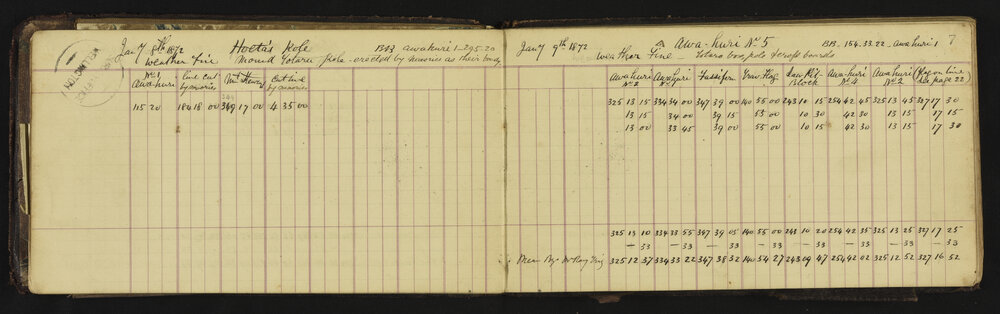 Jany 8th 1872 Hoeta's Pole BB3 awahuri 1-295-20
Weather fine Mound Totara pole erected by maories as their bondy
No 1 Awahuri Line Cut by maories Cut line by maories
115 20 184 18 00 349 17 00 4 35 00
Jany 9th 1872 △ Awa-huri No 5 BB. 154.33.22 - awahuri 1 7
Weather Fine Totara box pole & cross boards
Awahuri No 2 Awahuri No 1 Fussifern Block Awa-huri No 4 Awa-huri No 2 Flag on line see page 22
325 13 15 334 34 00 347 39 00 140 55 00 243 10 15 254 42 45 325 13 45 327 17 30
13 15 34 00 39 15 55 00 10 30 42 30 13 15 17 30
13 00 33 45 39 00 55 00 10 15 42 30 13 15 17 30
325 13 10 334 33 55 347 39 05 140 55 00 243 10 20 254 42 35 325 13 25 327 17 25
— 33 — 33 — 33 — 33 — 33 — 33 — 33 — 33
325 12 37 334 33 22 347 38 32 140 54 27 243 09 47 254 42 02 325 12 52 327 16 52